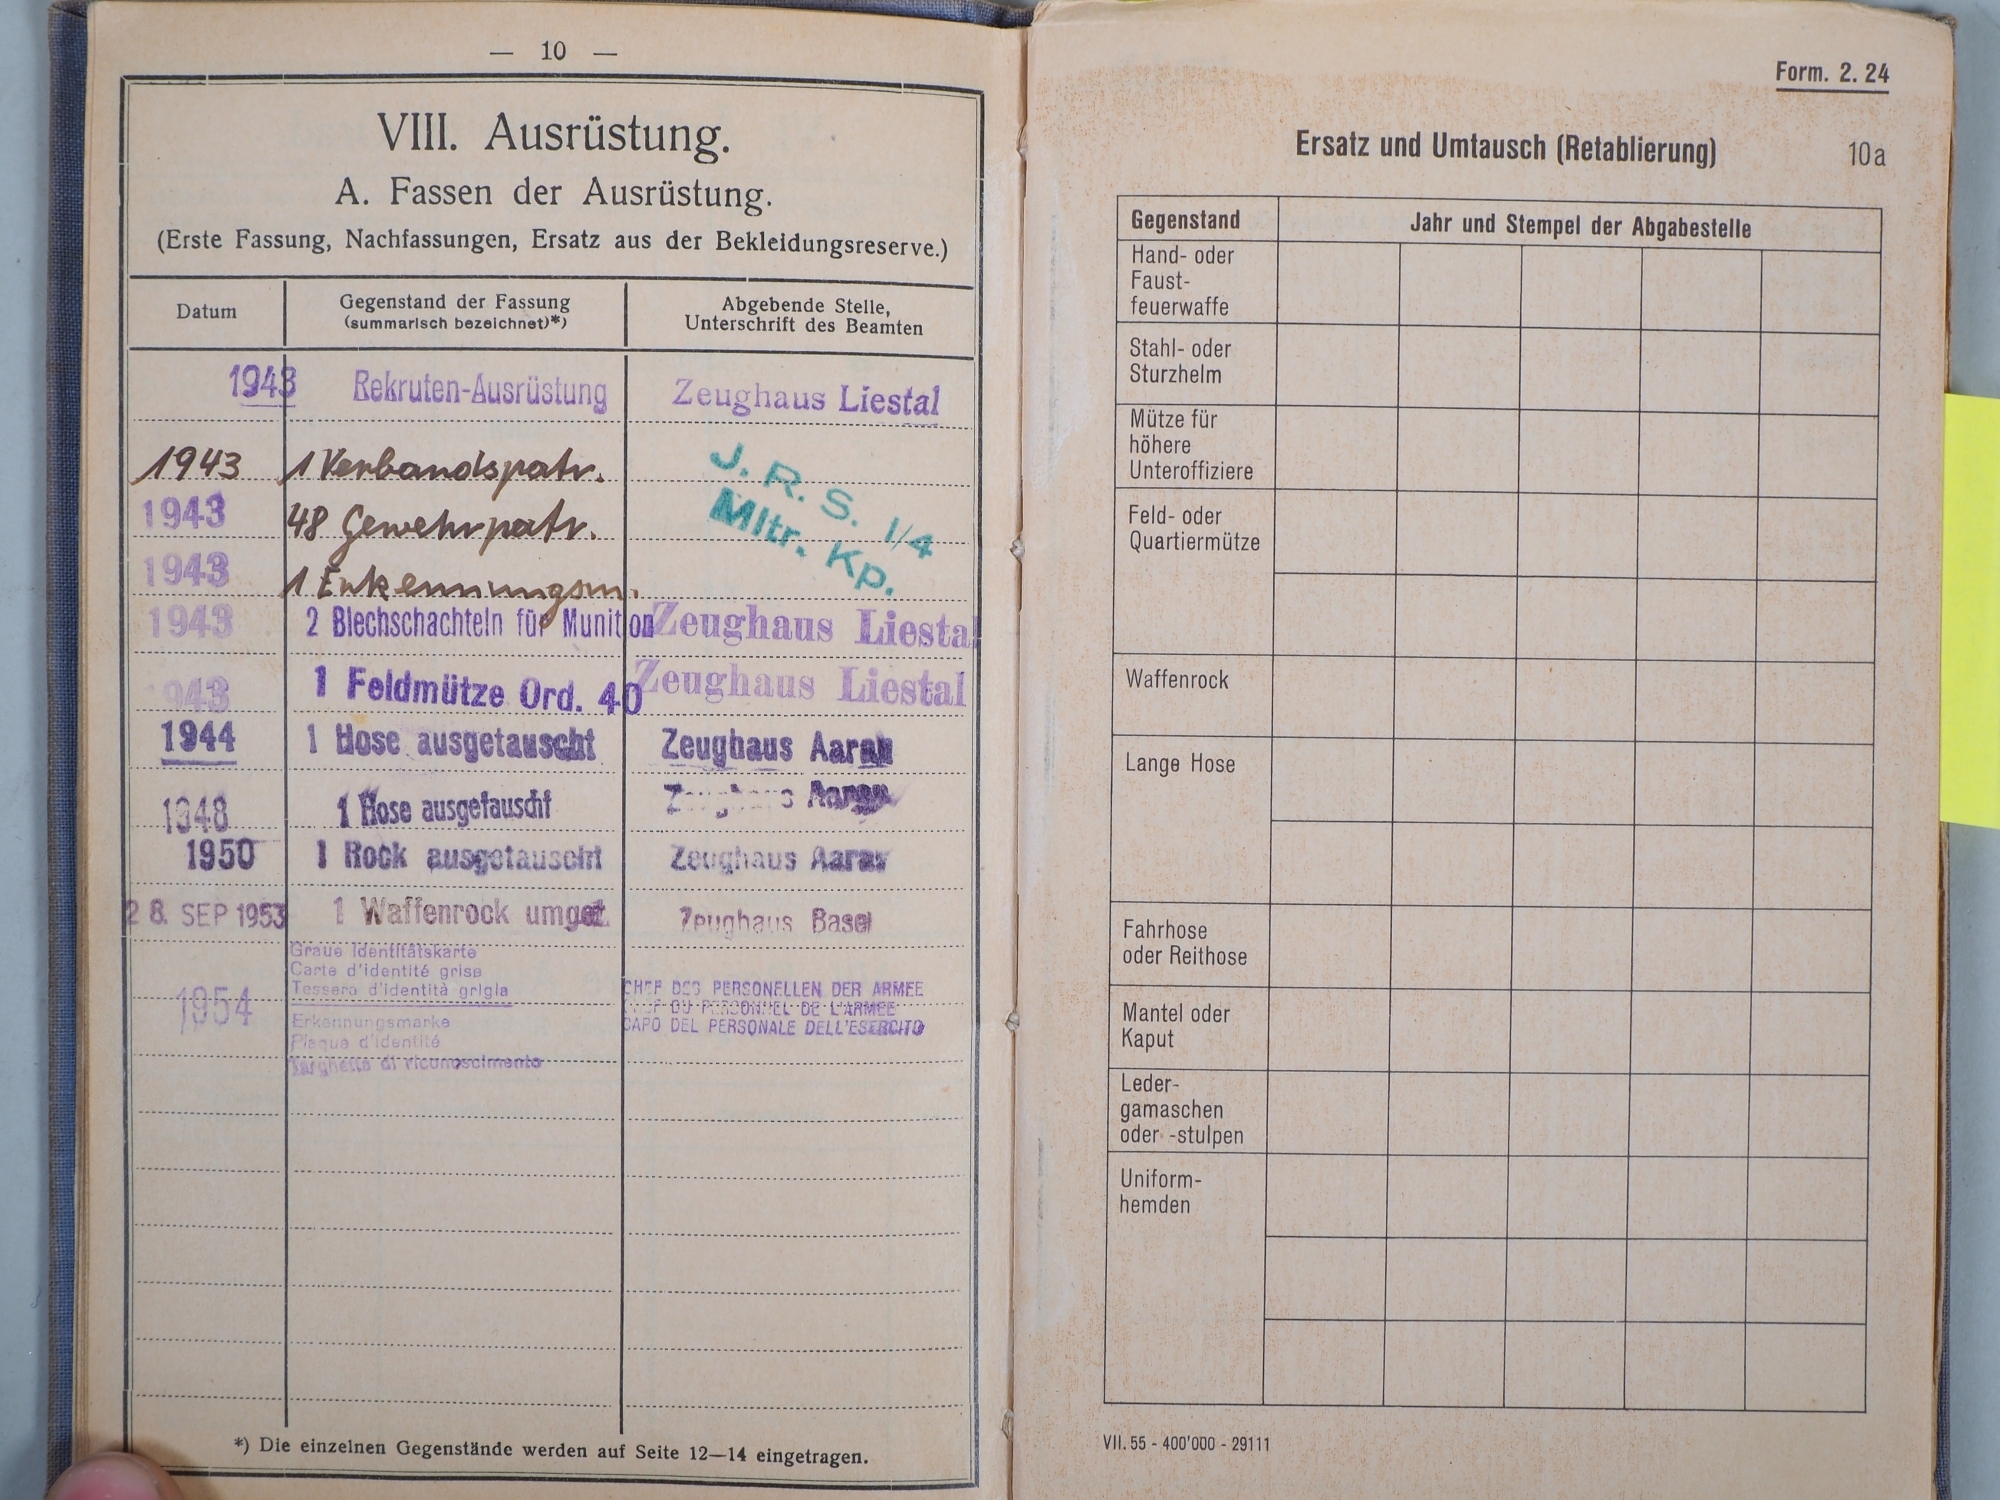 — 10 —
VIII. Ausrüstung.
A. Fassen der Ausrüstung.
(Erste Fassung, Nachfassungen, Ersatz aus der Bekleidungsreserve.)
Datum
Gegenstand der Fassung
(summarisch bezeichnet)*)
Abgebende Stelle,
Unterschrift des Beamten
1943 Rekruten-Ausrüstung Zeughaus Liestal
1943 1 Verbandspatr.
1943 48 Gewehrpatr.
1943 1 Erkennungsm.
J. R. S. I/4
Mitr. Kp.
1943 2 Blechschachteln für Munition Zeughaus Liestal
1943 1 Feldmütze Ord. 40 Zeughaus Liestal
1944 1 Hose ausgetauscht Zeughaus Aarau
1948 1 Hose ausgetauscht Zeughaus Aarau
1950 1 Rock ausgetauscht Zeughaus Aarau
28. SEP 1953 1 Waffenrock umget. Zeughaus Basel
1954
Graue Identitätskarte
Carte d'identité grise
Tessera d'identità grigia
Erkennungsmarke
Plaque d'identité
Targhetta di riconoscimento
CHEF DES PERSONELLEN DER ARMEE
CHEF DU PERSONNEL DE L'ARMEE
CAPO DEL PERSONALE DELL'ESERCITO
*) Die einzelnen Gegenstände werden auf Seite 12—14 eingetragen.
Form. 2. 24
Ersatz und Umtausch (Retablierung) 10a
Gegenstand Jahr und Stempel der Abgabestelle
Hand- oder
Faust-
feuerwaffe
Stahl- oder
Sturzhelm
Mütze für
höhere
Unteroffiziere
Feld- oder
Quartiermütze
Waffenrock
Lange Hose
Fahrhose
oder Reithose
Mantel oder
Kaput
Leder-
gamaschen
oder -stulpen
Uniform-
hemden
VII. 55 - 400'000 - 29111